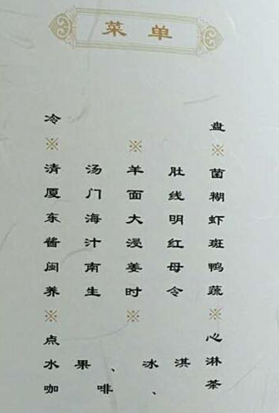 菜单
冷 盘
※ ※ ※
清汤羊肚菌
厦门面线糊
东海大明虾
酱汁浸红斑
闽南姜母鸭
养生时令蔬
※ ※ ※
点 心
水果、冰淇淋
咖啡、茶